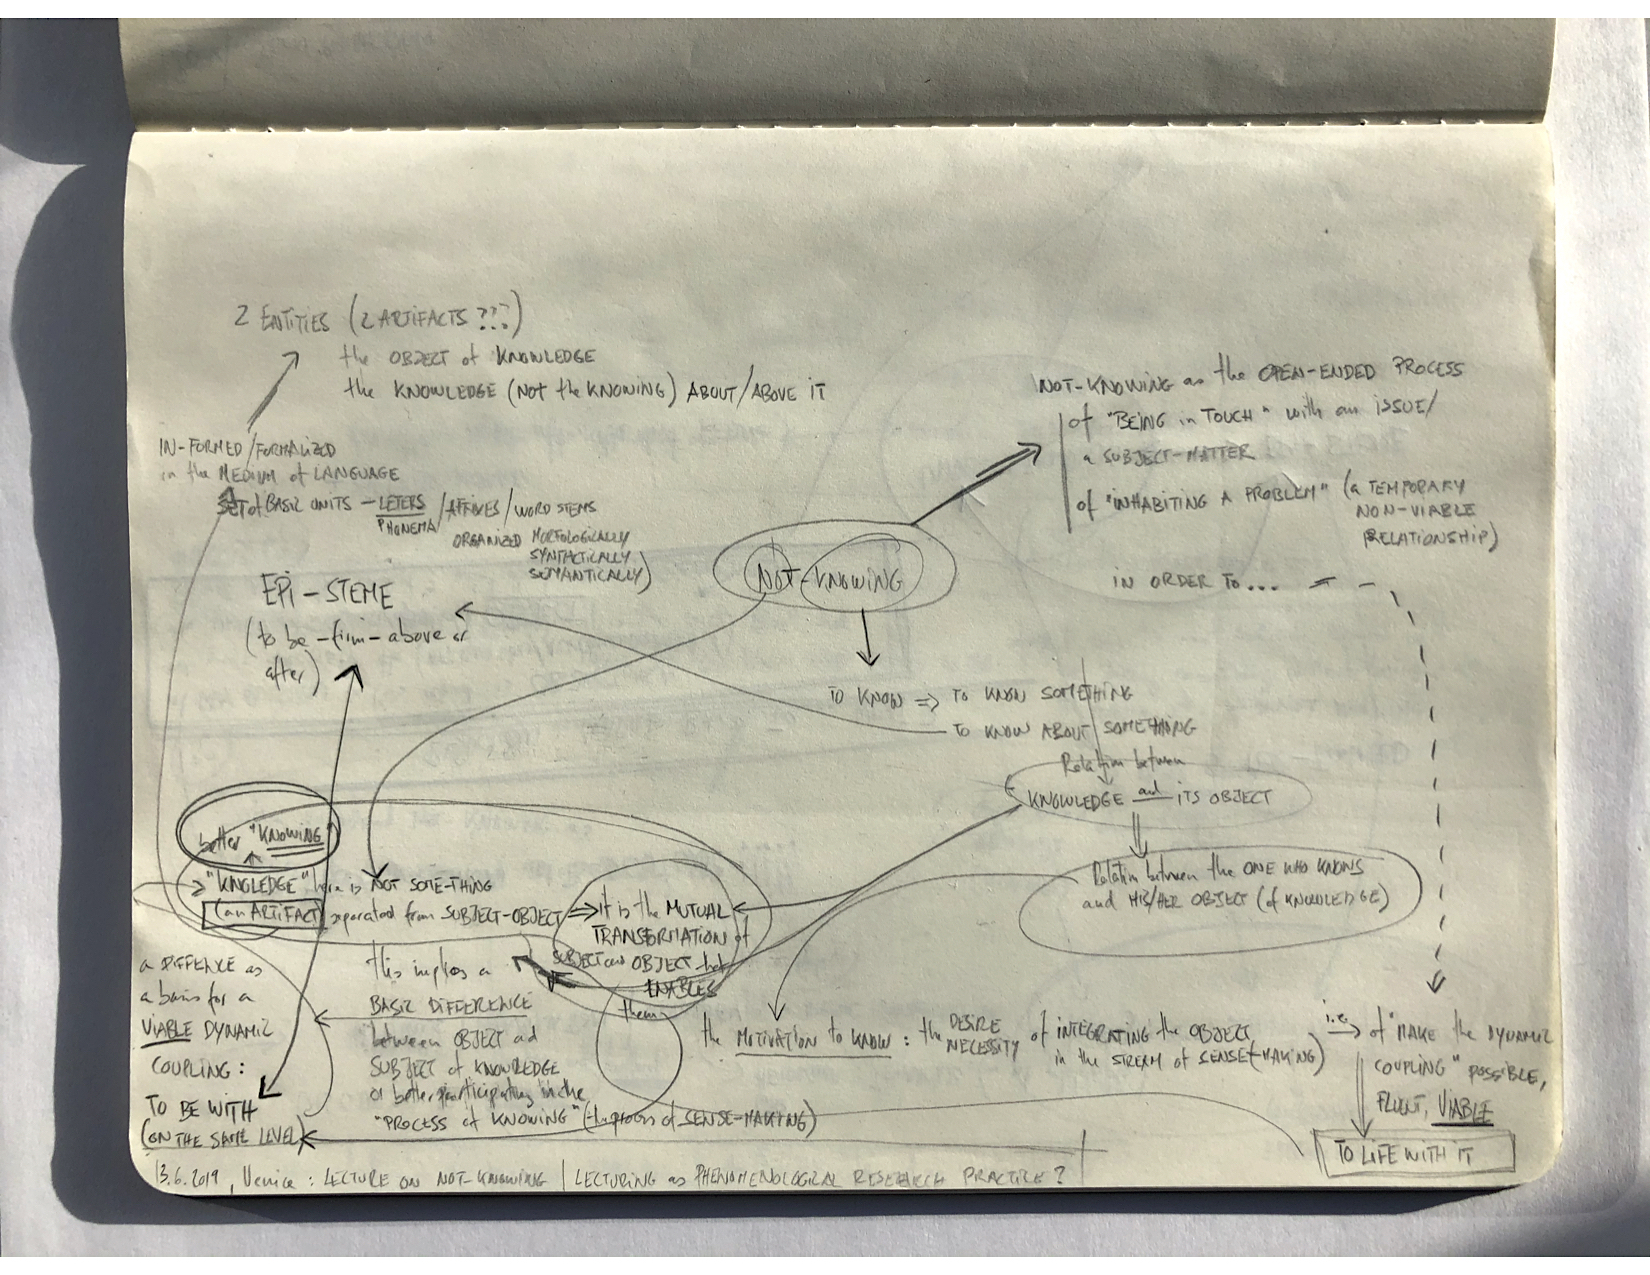 2 ENTITIES (2 ARTIFACTS ???)
the OBJECT of KNOWLEDGE
the KNOWLEDGE (NOT the KNOWING) ABOUT/ABOVE IT
IN-FORMED/FORMALIZED
in the MEDIUM of LANGUAGE
SET of BASIC UNITS – LETERS / AFFIXES / WORD STEMS
PHONEMA
ORGANIZED MORFOLOGICALLY
SYNTACTICALLY
SEMANTICALLY)
EPI – STEME
(to be – firm – above or
after)
NOT-KNOWING as the OPEN-ENDED PROCESS
of "BEING in TOUCH" with an ISSUE/
a SUBJECT-MATTER
of "INHABITING A PROBLEM" (a TEMPORARY
NON-VIABLE
RELATIONSHIP)
IN ORDER TO...
NOT-KNOWING
TO KNOW => TO KNOW SOMETHING
TO KNOW ABOUT SOMETHING
Relation between
KNOWLEDGE and ITS OBJECT
Relation between the ONE WHO KNOWS
and HIS/HER OBJECT (of KNOWLEDGE)
better "KNOWING"
"KNOLEDGE" here is NOT SOME-THING
(an ARTIFACT) separated from SUBJECT-OBJECT => it is the MUTUAL
TRANSFORMATION of
SUBJECT and OBJECT that
ENABLES
them
this implies a
BASIC DIFFERENCE
between OBJECT ad
SUBJECT of KNOWLEDGE
or better participating in the
"PROCESS of KNOWING" (the process of SENSE-MAKING)
a DIFFENCE as
a basis for a
VIABLE DYNAMIC
COUPLING:
TO BE WITH
(ON THE SAME LEVEL)
the MOTIVATION to KNOW : the DESIRE of INTEGRATING the OBJECT
NECESSITY in the STREAM of SENSE-MAKING)
i.e.
of "MAKE the DYNAMIC
COUPLING" POSSIBLE,
FLUENT, VIABLE
TO LIFE WITH IT
13.6.2019, Venice : LECTURE ON NOT-KNOWING | LECTURING as PHENOMENOLOGICAL RESEARCH PRACTICE ?